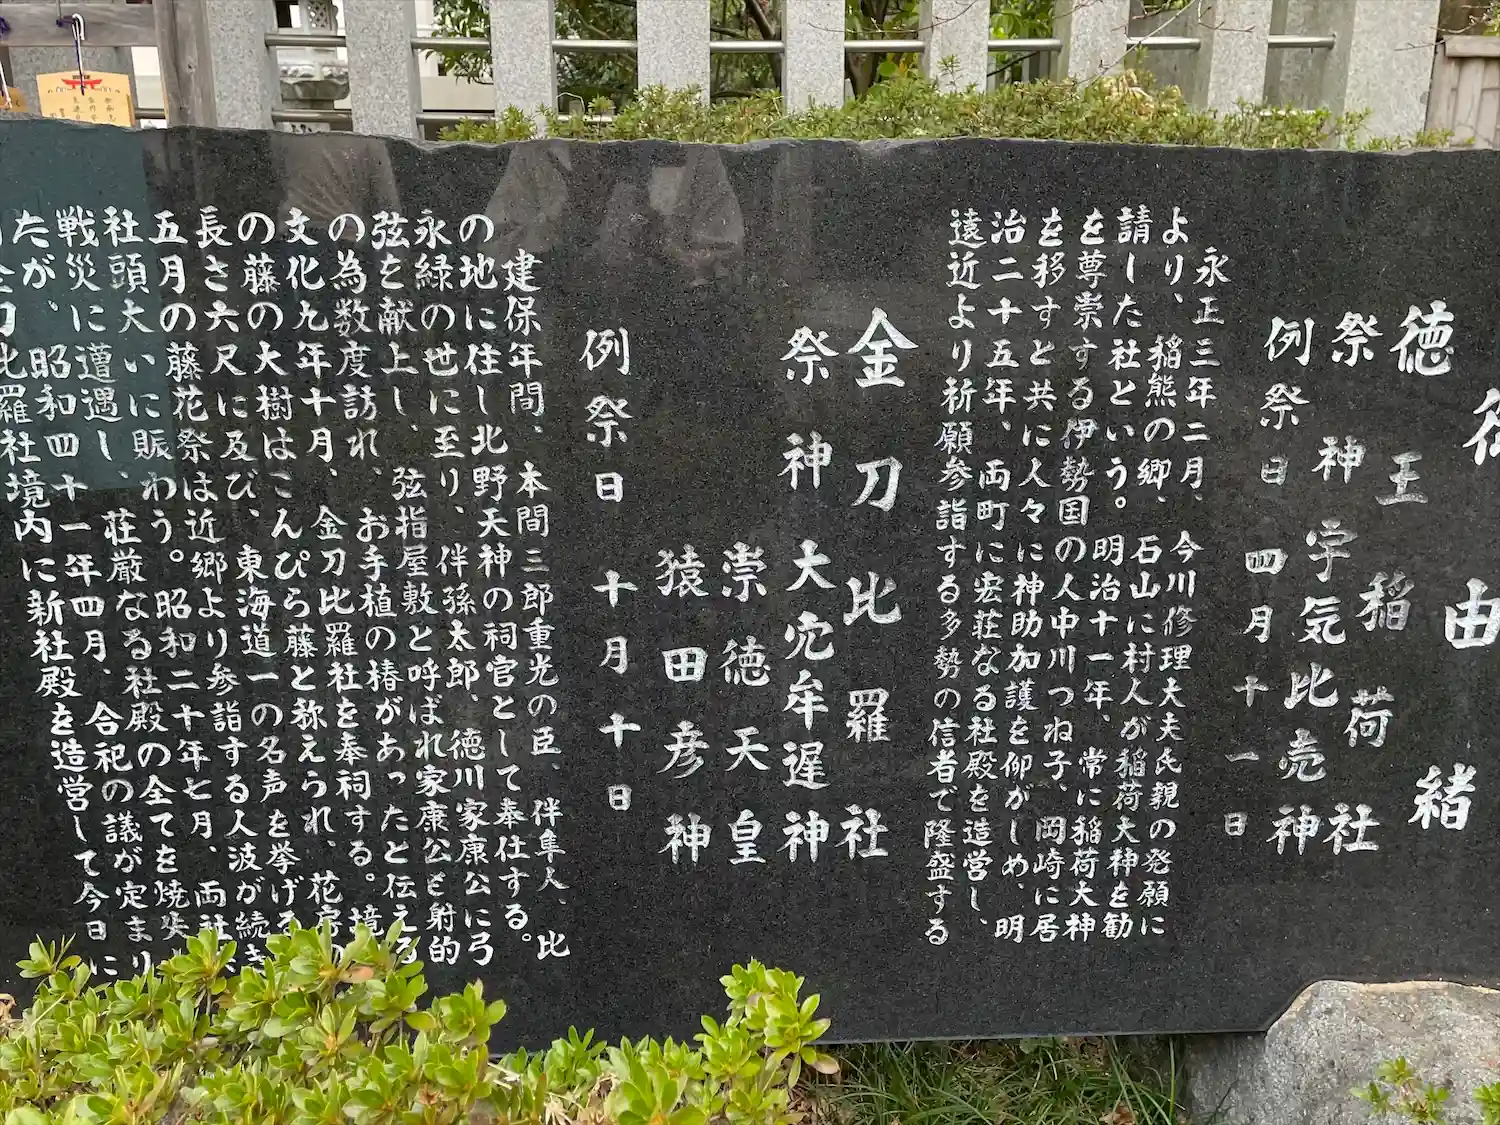 御由緒
徳王稲荷社
祭神宇気比売神
例祭日四月十一日
永正三年二月、今川修理大夫氏親の発願に
より、稲熊の郷、石山に村人が稲荷大神を勧
請した社という。明治十一年、常に稲荷大神
を尊崇する伊勢国の人中川つね子、岡崎に居
を移すと共に人々に神助加護を仰がしめ、明
治二十五年、両町に宏荘なる社殿を造営し、
遠近より祈願参詣する多勢の信者で隆盛する
金刀比羅社
祭神大穴牟遅神
崇徳天皇
猿田彦神
例祭日十月十日
建保年間、本間三郎重光の臣、伴隼人、比
の地に住し北野天神の祠官として奉仕する。
永緑の世に至り、伴孫太郎、徳川家康公に弓
弦を献上し、弦指屋敷と呼ばれ家康公も射的
の為数度訪れ、お手植の椿があったと伝える
文化九年十月、金刀比羅社を奉祠する。境
の藤の大樹はこんぴら藤と称えられ、花房の
長さ六尺に及び、東海道一の名声を挙げる
五月の藤花祭は近郷より参詣する人波が続き
社頭大いに賑わう。昭和二十年七月、両社
戦災に遭遇し、荘厳なる社殿の全てを焼失
たが、昭和四十一年四月、合祀の議が定まり
金刀比羅社境内に新社殿を造営して今日に